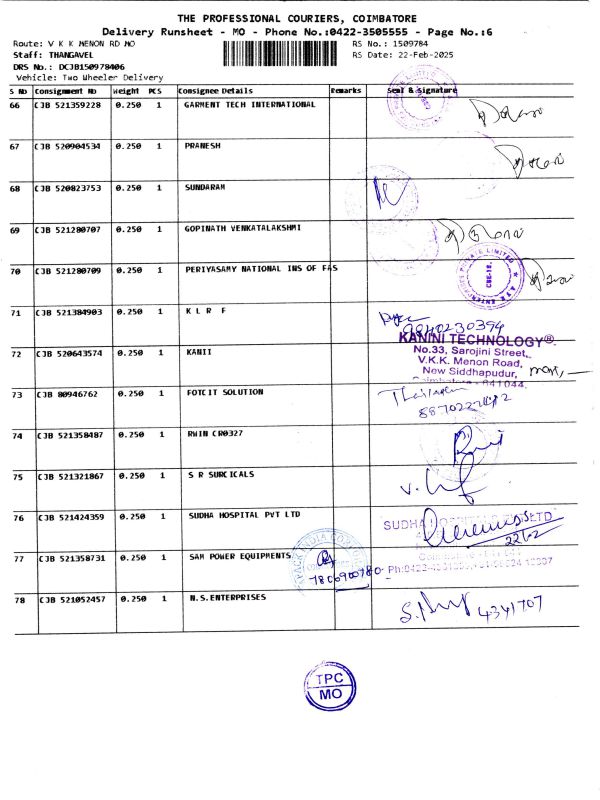 THE PROFESSIONAL COURIERS, COIMBATORE
Delivery Runsheet - MO - Phone No.:0422-3505555 - Page No.:6
Route: V K K MENON RD MO RS No.: 1509784
Staff: THANGAVEL RS Date: 22-Feb-2025
DRS No.: DCJB150978406
Vehicle: Two Wheeler Delivery
S No Consignment No Weight PCS Consignee Details Remarks Seal & Signature
66 CJB 521359228 0.250 1 GARMENT TECH INTERNATIONAL
67 CJB 520904534 0.250 1 PRANESH
68 CJB 520823753 0.250 1 SUNDARAM
69 CJB 521280707 0.250 1 GOPINATH VENKATALAKSHMI
70 CJB 521280709 0.250 1 PERIYASAMY NATIONAL INS OF FAS
71 CJB 521384903 0.250 1 K L R F
9840230394
72 CJB 520643574 0.250 1 KANII
KANINI TECHNOLOGY®
No.33, Sarojini Street,
V.K.K. Menon Road,
New Siddhapudur,
73 CJB 80946762 0.250 1 FOTCIT SOLUTION
74 CJB 521358487 0.250 1 RWIN CR0327
75 CJB 521321867 0.250 1 S R SURCICALS
76 CJB 521424359 0.250 1 SUDHA HOSPITAL PVT LTD
SUDHA
77 CJB 521358731 0.250 1 SAM POWER EQUIPMENTS
78 CJB 521052457 0.250 1 N.S.ENTERPRISES
4341707
TPC
MO